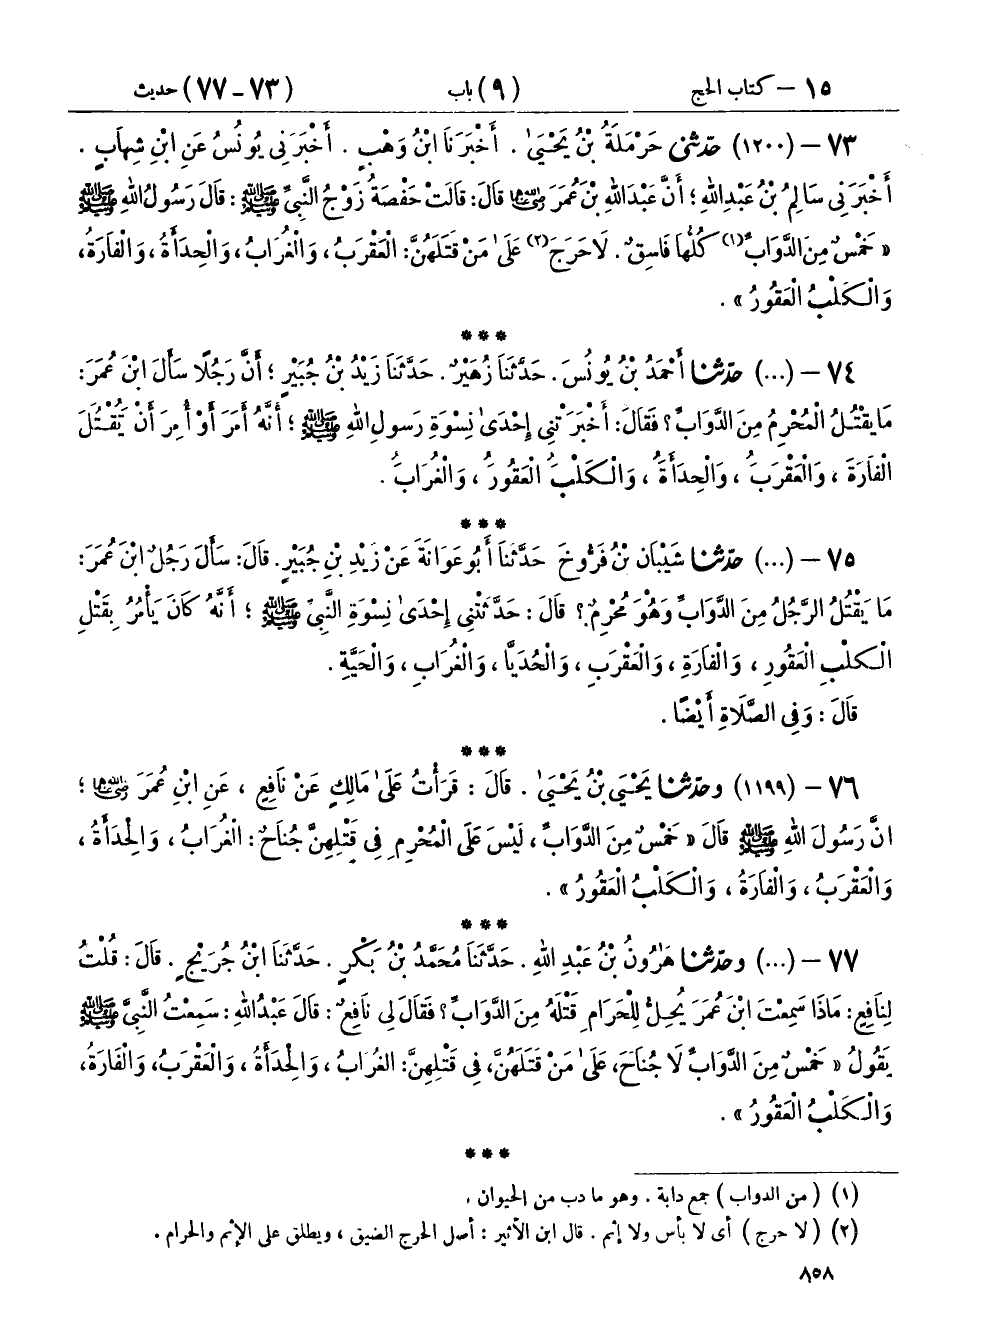 ١٥ – كتاب الحج (٩) باب (٧٣ – ٧٧) حديث
٧٣ – (١٢٠٠) حدّثنى حَرْمَلَةُ بْنُ يَحْيَىٰ . أَخْبَرَنَا ابْنُ وَهْبٍ . أَخْبَرَنِى يُونُسُ عَنِ ابْنِ شِهَابٍ .
أَخْبَرَنِى سَالِمُ بْنُ عَبْدِ اللهِ ؛ أَنَّ عَبْدَ اللهِ بْنَ عُمَرَ رضي الله عنهما قَالَ: قَالَتْ حَفْصَةُ زَوْجُ النَّبِىِّ ﷺ : قَالَ رَسُولُ اللهِ ﷺ
« خَمْسٌ مِنَ الدَّوَابِّ(١) كُلُّهَا فَاسِقٌ . لَا حَرَجَ(٢) عَلَىٰ مَنْ قَتَلَهُنَّ: الْعَقْرَبُ ، وَالْغُرَابُ ، وَالْحِدَأَةُ ، وَالْفَارَةُ ،
وَالْكَلْبُ الْعَقُورُ » .
***
٧٤ – (...) حدّثنا أَحْمَدُ بْنُ يُونُسَ . حَدَّثَنَا زُهَيْرٌ . حَدَّثَنَا زَيْدُ بْنُ جُبَيْرٍ ؛ أَنَّ رَجُلًا سَأَلَ ابْنَ عُمَرَ:
مَا يَقْتُلُ الْمُحْرِمُ مِنَ الدَّوَابِّ ؟ فَقَالَ: أَخْبَرَتْنِى إِحْدَىٰ نِسْوَةِ رَسولِ اللهِ ﷺ ؛ أَنَّهُ أَمَرَ أَوْ أُمِرَ أَنْ يَقْتُلَ
الْفَارَةَ ، وَالْعَقْرَبَ ، وَالْحِدَأَةَ ، وَالْكَلْبَ الْعَقُورَ ، وَالْغُرَابَ .
***
٧٥ – (...) حدّثنا شَيْبَان بْنُ فَرُّوخَ حَدَّثَنَا أَبُو عَوَانَةَ عَنْ زَيْدِ بْنِ جُبَيْرٍ . قَالَ: سَأَلَ رَجُلٌ ابْنَ عُمَرَ:
مَا يَقْتُلُ الرَّجُلُ مِنَ الدَّوَابِّ وَهُوَ مُحْرِمٌ ؟ قَالَ : حَدَّثَتْنِى إِحْدَىٰ نِسْوَةِ النَّبِىِّ ﷺ ؛ أَنَّهُ كَانَ يَأْمُرُ بِقَتْلِ
الْكَلْبِ الْعَقُورِ ، وَالْفَارَةِ ، وَالْعَقْرَبِ ، وَالْحُدَيَّا ، وَالْغُرَابِ ، وَالْحَيَّةِ .
قَالَ : وَفِى الصَّلَاةِ أَيْضًا .
***
٧٦ – (١١٩٩) وحدّثنا يَحْيَىٰ بْنُ يَحْيَىٰ . قَالَ : قَرَأْتُ عَلَىٰ مَالِكٍ عَنْ نَافِعٍ ، عَنِ ابْنِ عُمَرَ رضي الله عنهما ؛
انَّ رَسُولَ اللهِ ﷺ قَالَ « خَمْسٌ مِنَ الدَّوَابِّ ، لَيْسَ عَلَى الْمُحْرِمِ فِى قَتْلِهِنَّ جُنَاحٌ : الْغُرَابُ ، وَالْحِدَأَةُ ،
وَالْعَقْرَبُ ، وَالْفَارَةُ ، وَالْكَلْبُ الْعَقُورُ » .
***
٧٧ – (...) وحدّثنا هَارُونُ بْنُ عَبْدِ اللهِ . حَدَّثَنَا مُحَمَّدُ بْنُ بَكْرٍ . حَدَّثَنَا ابْنُ جُرَيْجٍ . قَالَ : قُلْتُ
لِنَافِعٍ: مَاذَا سَمِعْتَ ابْنَ عُمَرَ يُحِلُّ لِلْحَرَامِ قَتْلَهُ مِنَ الدَّوَابِّ ؟ فَقَالَ لِى نَافِعٌ : قَالَ عَبْدُ اللهِ : سَمِعْتُ النَّبِىَّ ﷺ
يَقُولُ « خَمْسٌ مِنَ الدَّوَابِّ لَا جُنَاحَ، عَلَىٰ مَنْ قَتَلَهُنَّ، فِى قَتْلِهِنَّ: الغُرَابُ ، وَالْحِدَأَةُ ، وَالْعَقْرَبُ، وَالْفَارَةُ،
وَالْكَلْبُ الْعَقُورُ » .
***
(١) ( من الدواب ) جمع دابة . وهو ما دب من الحيوان .
(٢) ( لا حرج ) أى لا بأس ولا إثم . قال ابن الأثير : أصل الحرج الضيق ، ويطلق على الإثم والحرام .
٨٥٨